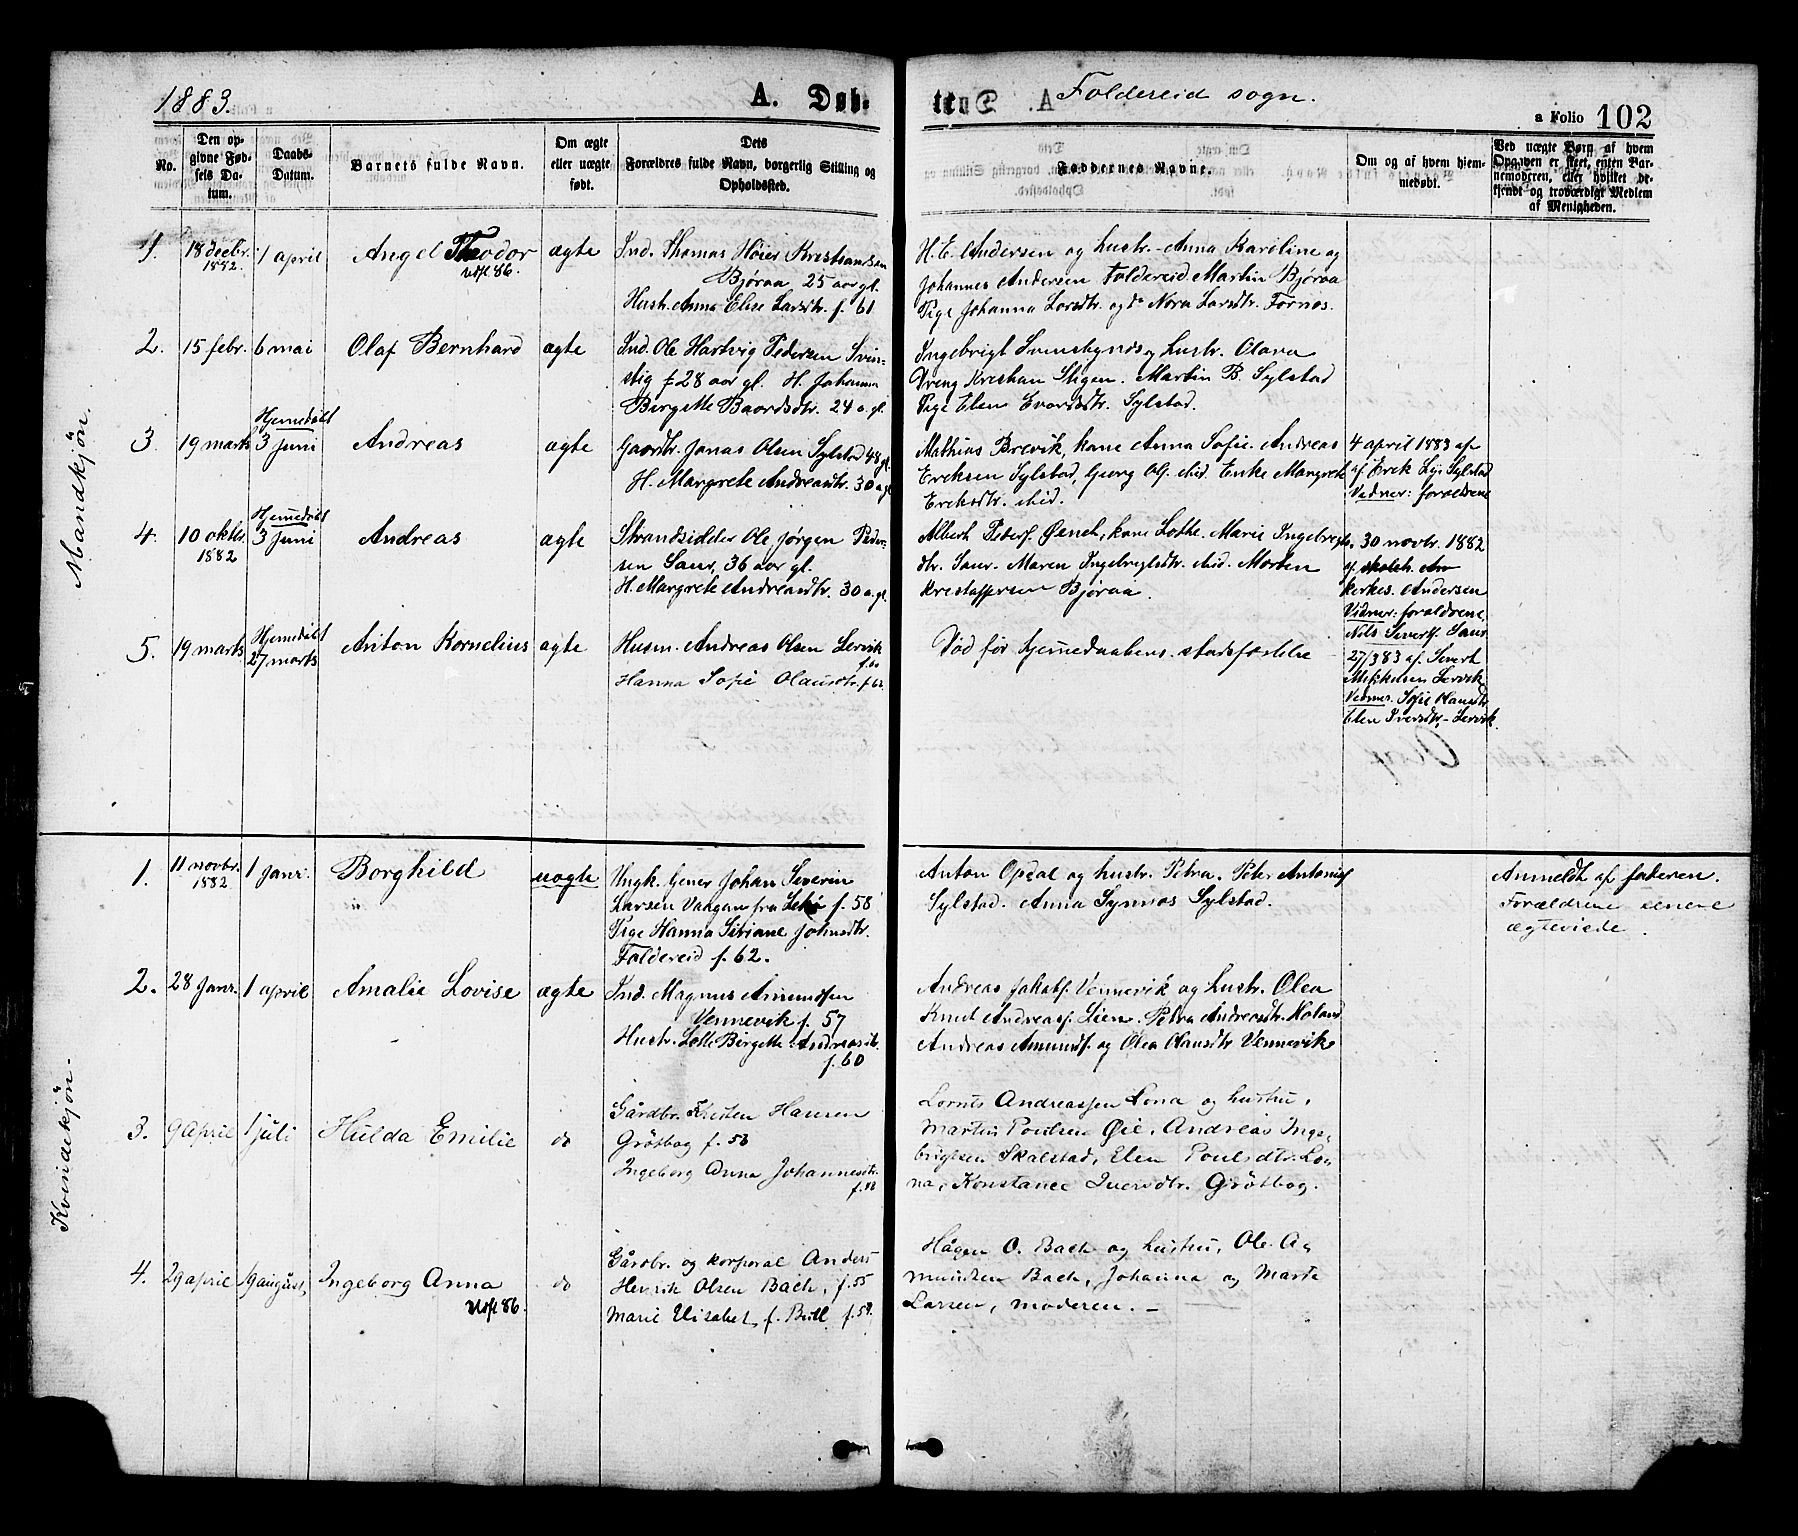 1883.
A. Døb-
A. Foldereid sogn.
a Folio 102
No.
Den op-
givne Fød-
sels Da-
tum.
Daabs-
Datum.
Barnets fulde Navn.
Om ægte
eller uægte
født.
Dets
Forældres fulde Navn, borgerlig Stilling og
Opholdssted.
Faddernes Navne.
Om og af hvem hjem-
medøbt.
Ved uægte Børn af hvem
Opgaven er skeet, enten Bar-
nemoderen, eller hvilket be-
kjendt og troværdigt Medlem
af Menigheden.
Mandkjön.
1.
18 decbr.
1882
1 april
Angel Theodor
Udfl 86.
ægte
Ind. Thomas Höier Kristiansen
Bjøraa 25 aar gl.
Hust. Anna Elise Larsdtr. f. 61
H. E. Andersen og hustr. Anna Karoline og
Johannes Andersen Foldereid Martin Bjøraa
Pige Johanna Larsdtr. og do Nora Larsdtr. Fornos.
2.
15 febr.
6 mai
Olaf Bernhard
ægte
Ind. Ole Hartvig Pedersen Svin-
stig f 28 aar gl. H. Johanna
Birgitte Baardsdtr. 24 a. gl.
Ingebrigt Svenskgnds og hustr. Olava
Dreng Kristian Stigen. Martin B. Sylstad
Pige Elen Evardsdtr. Sylstad.
3.
19 marts
Hjemedøbt
3 juni
Andreas
ægte
Gaardbr. Jonas Olsen Sylstad 48 gl.
H. Margrete Andreasdtr. 30 a gl
Mathias Brevik, kone Anna Sofie. Andreas
Eriksen Sylstad, Georg Ols. ibid. Enke Margrete
Eriksdtr. ibid.
4 april 1883 af
af Erik Sylstad
Vidner: forældrene
4.
10 oktbr.
1882
Hjemedøbt
3 juni
Andreas
ægte
Strandsidder Ole Jørgen Peder-
sen Saur, 36 aar gl.
H. Margrete Andreasdtr. 30 a. gl.
Albert Peders. Øiench, kone Lotte. Marie Ingebrigts-
dtr. Saur. Maren Ingebrigtsdtr. ibid. Morten
Kristoffersen Bjøraa.
30 novbr. 1882
af
kirkes. Andersen
Vidner: forældrene
Nils Siverts. Saur
5.
19 marts
Hjemedøbt
27 marts
Anton Kornelius
ægte
Husm. Andreas Olsen Lervik
f. 60
Hanna Sofie Olausdtr. f. 62
Död för hjemedaabens stadfæstelse
27/3 83 af Sivert
Mikkelsen Lervik
Vidner. Sofie Olausdtr
Elen Iversdtr. Lervik.
Kvindekjön.
1.
11 novbr.
1882
1 Janr.
Borghild
uægte
Ungk. Gener Johan Severin
Larsen Vaagan fra Lekø f. 58
Pige Hanna Siriane Johnsdtr.
Foldereid f. 62.
Anton Opdal og hustr. Petra. Peter Antonis
Sylstad. Anna Synnøs Sylstad.
Anmeldt af faderen.
Forældrene senere
ægteviede.
2.
28 Janr.
1 april
Amalie Lovise
ægte
Ind. Magnus Amundsen
Vennevik f. 57
Hustr. Lotte Birgitte Andreasdtr.
f. 60
Andreas Jakobs. Vennevik og hustr. Olea
Knut Andreas. Lien. Petra Andreasdtr. Holand
Andreas Amunds. og Olea Olausdtr Vennevik
3.
9 april
1 juli
Hulda Emilie
do
Gårdbr. Kristen Hansen
Grötbog f. 53
Ingeborg Anna Johannesdtr.
Lornts Andreassen Lona og hustru,
Martin Poulsen Øie, Andreas Inge-
brigtsen Skalstad, Elen Poulsdtr. Lo-
na, Konstance Iversdtr. Grötbog.
4.
29 april
19 august,
Ingeborg Anna
Udfl 86.
do
Gårdbr. og korporal Anders
Henrik Olsen Bach, f. 55
Marie Elisabet, f. Bull f. 59.
Hågen O. Bach og hustru, Ole A-
mundsen Bach, Johanna og Marta
Larsen, moderen. –